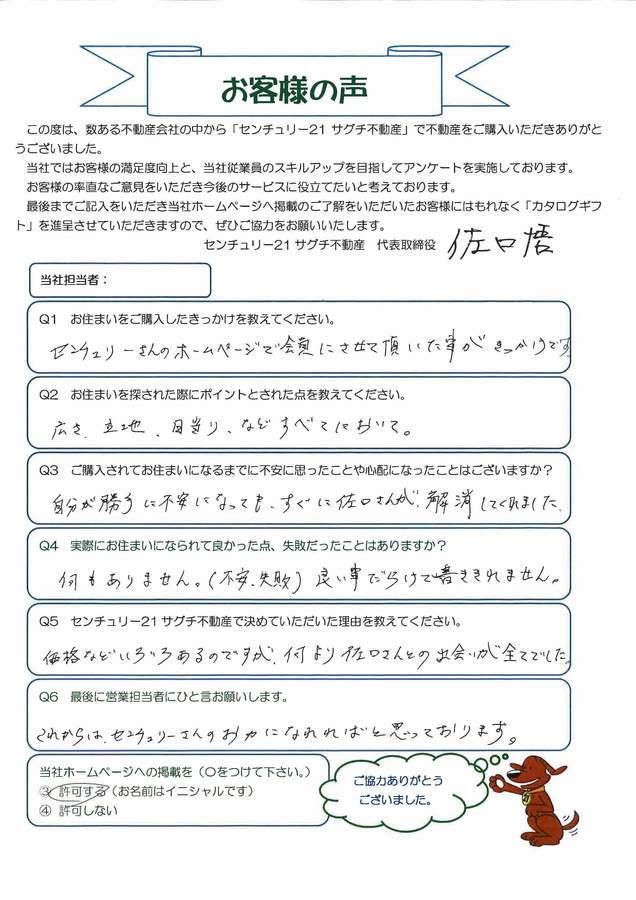 お客様の声
この度は、数ある不動産会社の中から「センチュリー21 サグチ不動産」で不動産をご購入いただきありがと
うございました。
当社ではお客様の満足度向上と、当社従業員のスキルアップを目指してアンケートを実施しております。
お客様の率直なご意見をいただき今後のサービスに役立てたいと考えております。
最後までご記入をいただき当社ホームページへ掲載のご了解をいただいたお客様にはもれなく「カタログギフ
ト」を進呈させていただきますので、ぜひご協力をお願いいたします。
センチュリー21 サグチ不動産 代表取締役 佐口悟
当社担当者:
Q1 お住まいをご購入したきっかけを教えてください。
センチュリーさんのホームページで会員にさせて頂いた事がきっかけです
Q2 お住まいを探された際にポイントとされた点を教えてください。
広さ、立地、日当り、などすべてにおいて。
Q3 ご購入されてお住まいになるまでに不安に思ったことや心配になったことはございますか?
自分が勝手に不安になっても、すぐに佐口さんが、解消してくれました。
Q4 実際にお住まいになられて良かった点、失敗だったことはありますか?
何もありません。(不安、失敗)良い事だらけで書ききれません。
Q5 センチュリー21 サグチ不動産で決めていただいた理由を教えてください。
価格などいろいろあるのですが、何より佐口さんとの出会いが全てでした。
Q6 最後に営業担当者にひと言お願いします。
これからは、センチュリーさんのお力になれればと思っております。
当社ホームページへの掲載を(○をつけて下さい。)
③ 許可する(お名前はイニシャルです)
④ 許可しない
ご協力ありがとう
ございました。